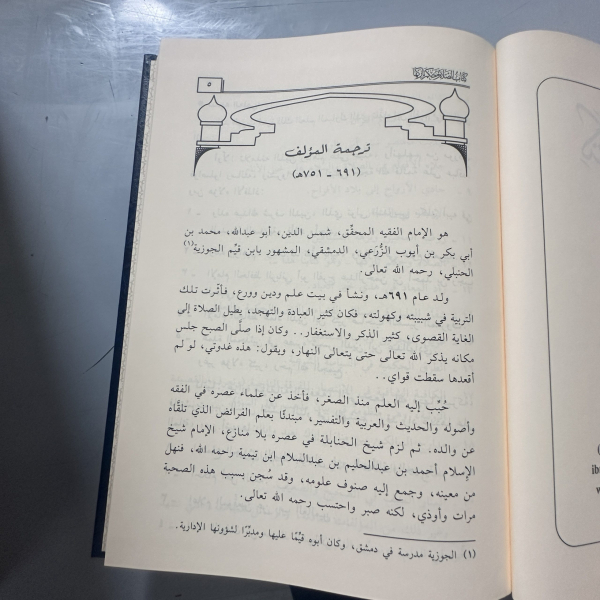 كتاب الصلاة وحكم تاركها
٥
ترجمة المؤلف
(٦٩١ - ٧٥١هـ)
هو الإمام الفقيه المحقّق، شمس الدين، أبو عبدالله، محمد بن
أبي بكر بن أيوب الزُّرَعي، الدمشقي، المشهور بابن قيّم الجوزية(١)
الحنبلي، رحمه الله تعالى.
ولد عام ٦٩١هـ، ونشأ في بيت علم ودين وورع، فأثرت تلك
التربية في شبيبته وكهولته، فكان كثير العبادة والتهجد، يطيل الصلاة إلى
الغاية القصوى، كثير الذكر والاستغفار.. وكان إذا صلَّى الصبح جلس
مكانه يذكر الله تعالى حتى يتعالى النهار، ويقول: هذه غدوتي، لو لم
أقعدها سقطت قواي..
حُبّب إليه العلم منذ الصغر، فأخذ عن علماء عصره في الفقه
وأصوله والحديث والعربية والتفسير، مبتدئًا بعلم الفرائض الذي تلقَّاه
عن والده. ثم لزم شيخ الحنابلة في عصره بلا منازع، الإمام شيخ
الإسلام أحمد بن عبدالحليم بن عبدالسلام ابن تيمية رحمه الله، فنهل
من معينه، وجمع إليه صنوف علومه، وقد سُجن بسبب هذه الصحبة
مرات وأوذي، لكنه صبر واحتسب رحمه الله تعالى.
(١) الجوزية مدرسة في دمشق، وكان أبوه قيِّمًا عليها ومدبِّرًا لشؤونها الإدارية.